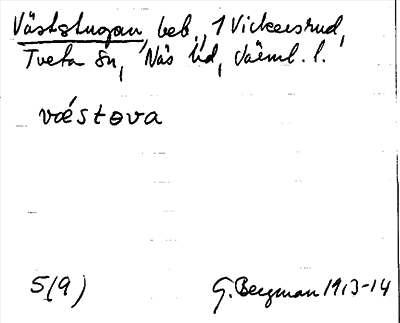 Väststugan, beb., 1 Vickersrud,
Tveta sn, Näs hd, Värml. l.
vǽstɵva
5(9) G. Bergman 1913-14